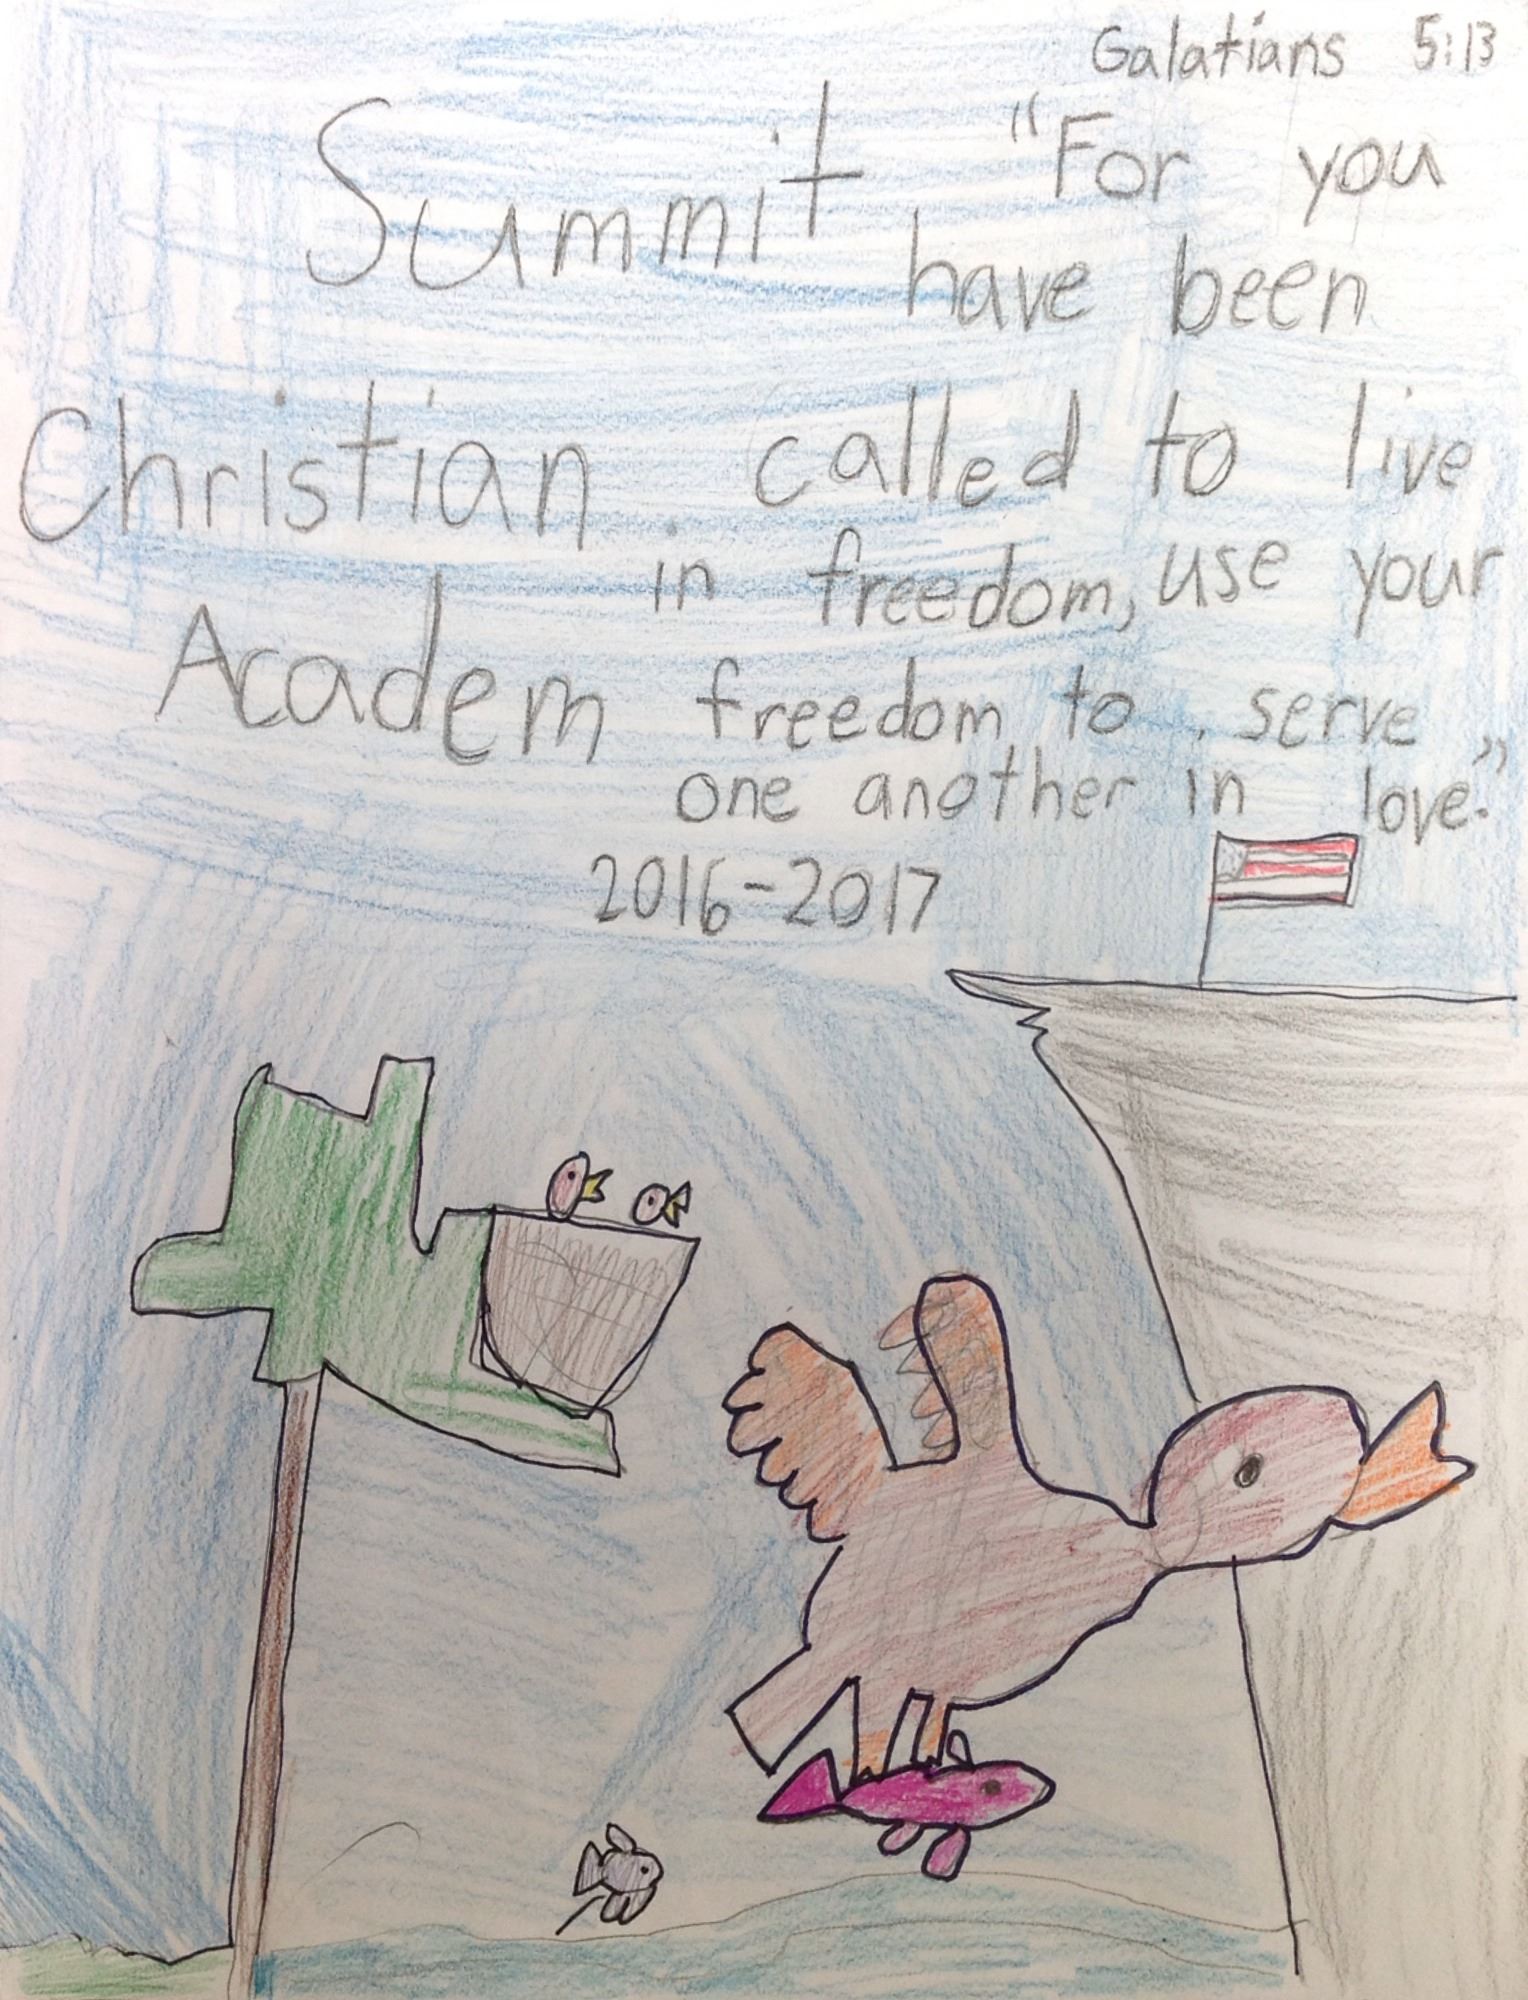 Galatians 5:13
Summit
Christian
Academ
"For you
have been
called to live
in freedom, use your
freedom to serve
one another in love."
2016-2017